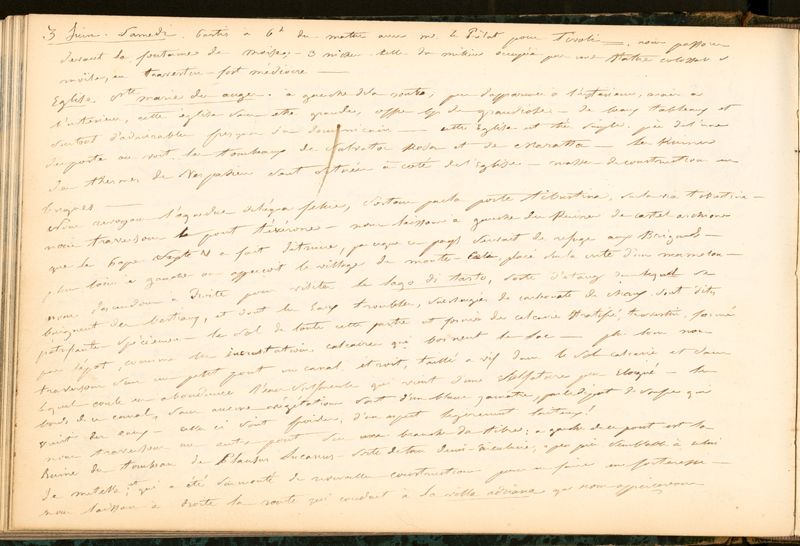 3 Juin. Samedi. Partis à 6h du matin avec mr. le Pélat pour Tivoli =, nous passons
devant la fontaine de Moïse, 3 niches celle du milieu occupée par une Statue colossale
en travertin fort médiocre —
Eglise Ste marie des anges. à gauche de la route, peu d'apparence à l'extérieur, mais à
l'intérieur, cette église sans être grande, offre de grandiose — de beaux tableaux et
surtout d'admirables fresques du dominicain — cette Eglise est très simple
de la porte on voit les tombeaux de Salvator Rosa et de C. Maratta — les Ruines
des thermes de sont situées à coté de l'Eglise — masse de construction en
briques —
Nous revoyons l'aqueduc de l'aqua felice, sortons par la porte tiburtina, sur la via tiburtina —
nous traversons le pont — nous laissons à gauche des Ruines de castel
que le Pape a fait détruire, parceque ce pays servait de refuge aux Brigands —
plus loin à gauche on apperçoit le village de monte placé sur la crête d'un mamelon —
nous descendons à Droite pour visiter le lago di tartaro, sorte d'étang dans lequel se
baignent des bestiaux, et dont les Eaux troubles, surchargées de carbonate de chaux sont dites
pétrifiantes — le sol de toute cette partie est formé de calcaire stratifié, travertin, formé
par dépôt, comme les incrustations calcaires qui bordent le lac — plus loin nous
traversons sur un petit pont un canal étroit, taillé à vif dans le sol calcaire et dans
lequel coule en abondance l'eau sulfureuse qui vient d'une solfatare peu éloignée — les
bords de ce canal, sans aucune végétation sont d'un blanc jaunâtre, par le dépôt de soufre qui
vient des eaux — celles ci sont froides, d'un aspect légèrement laiteux!
nous traversons un autre pont sur une branche du tibre; à gauche de ce pont est la
Ruine du tombeau de Plautus Lucanus — sorte de tour demi-circulaire, à peu près semblable à celui
de metella, et qui a été surmonté de nouvelles constructions pour en faire une forteresse —
nous laissons à droite la route qui conduit à la villa adriana que nous appercevons